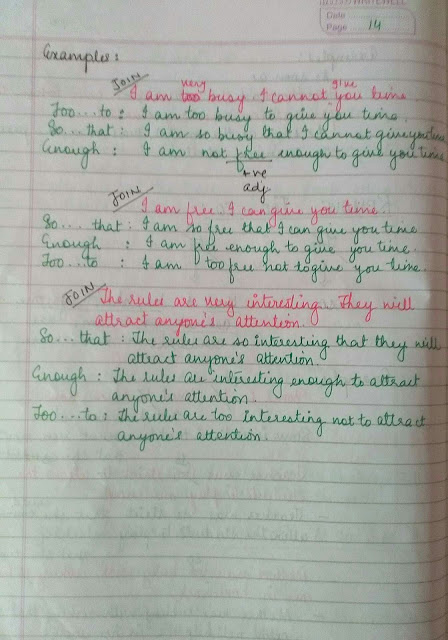 Date
Page 14
Examples:
JOIN
I am too very busy. I cannot give you time.
Too...to : I am too busy to give you time.
So...that : I am so busy that I cannot give you time
Enough : I am not free enough to give you time
+ve
adj
JOIN
I am free. I can give you time.
So...that : I am so free that I can give you time
Enough : I am free enough to give you time.
Too...to : I am too free not to give you time.
JOIN
The rules are very interesting. They will
attract anyone's attention.
So...that : The rules are so interesting that they will
attract anyone's attention.
Enough : The rules are interesting enough to attract
anyone's attention.
Too...to : The rules are too interesting not to attract
anyone's attention.